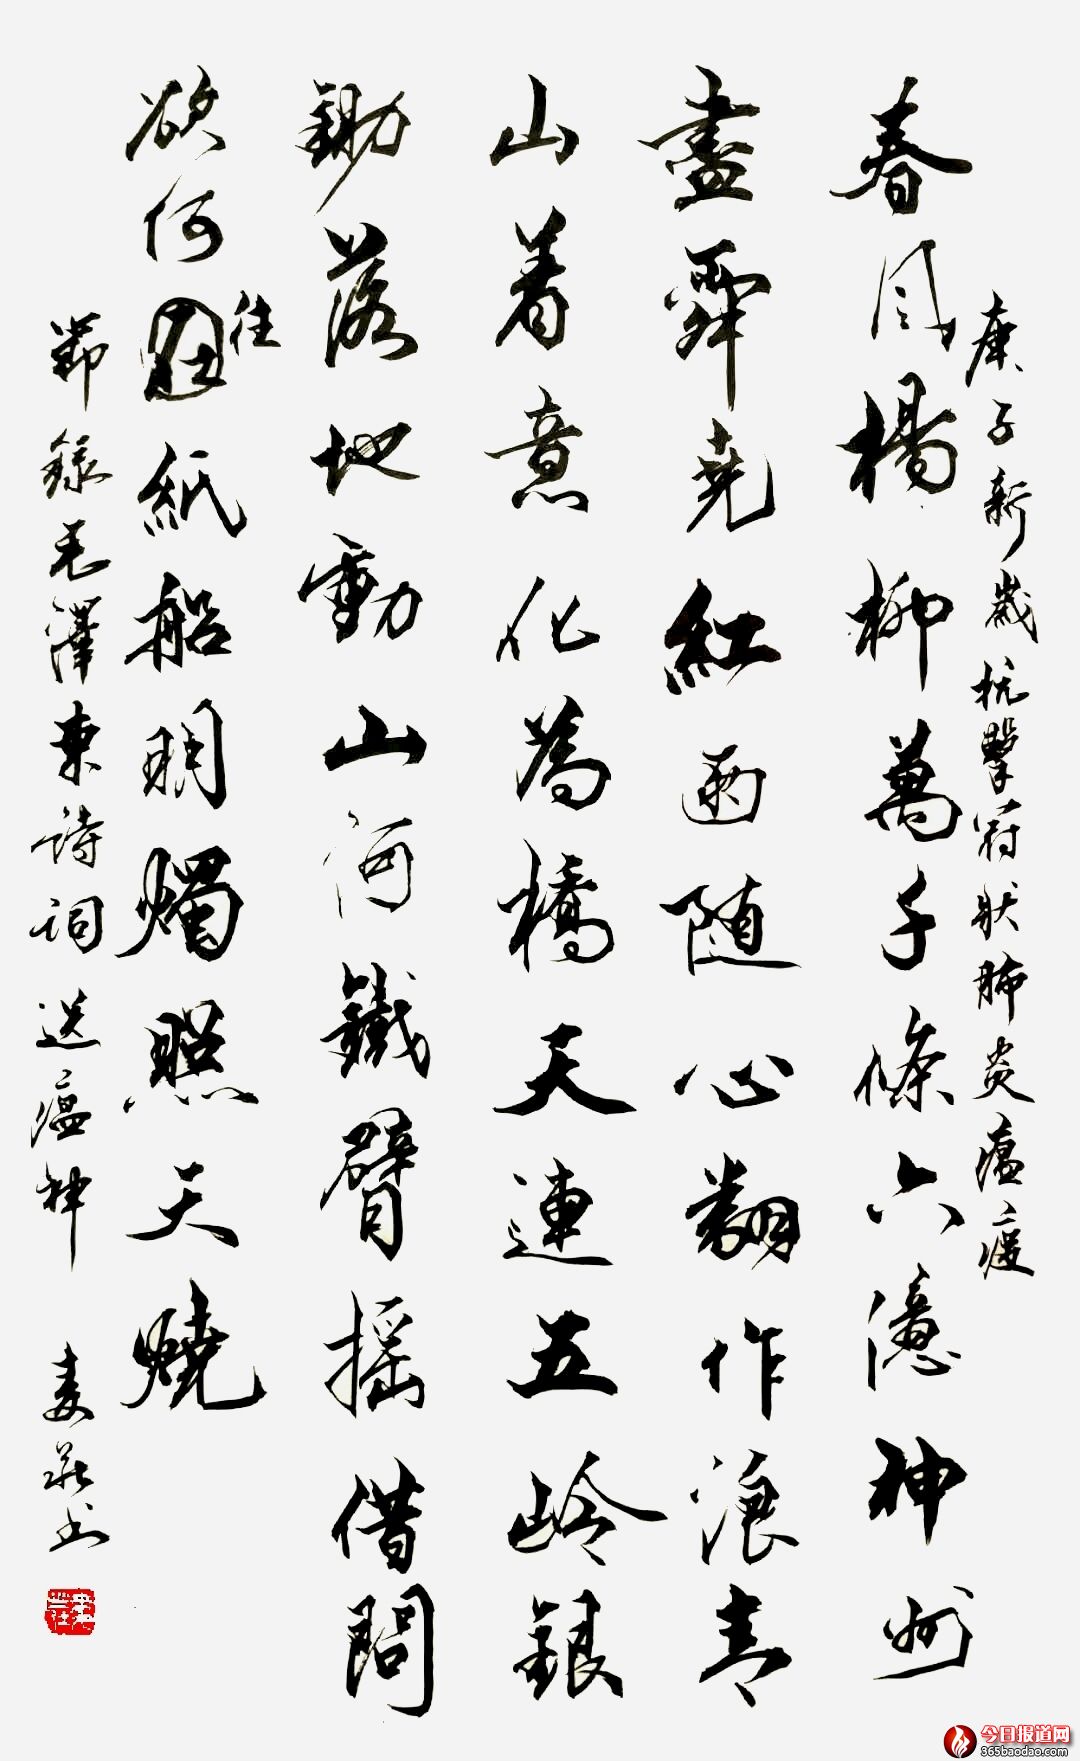 庚子新歲抗擊冠狀肺炎瘟疫
春风楊柳萬千條六億神州
盡舜堯紅雨随心翻作浪青
山着意化為橋天連五岭銀
鋤落地動山河鐵臂摇借問
欲何往紙船明燭照天燒
節錄毛澤東詩詞送瘟神
书
今日报道网
365baodao.com